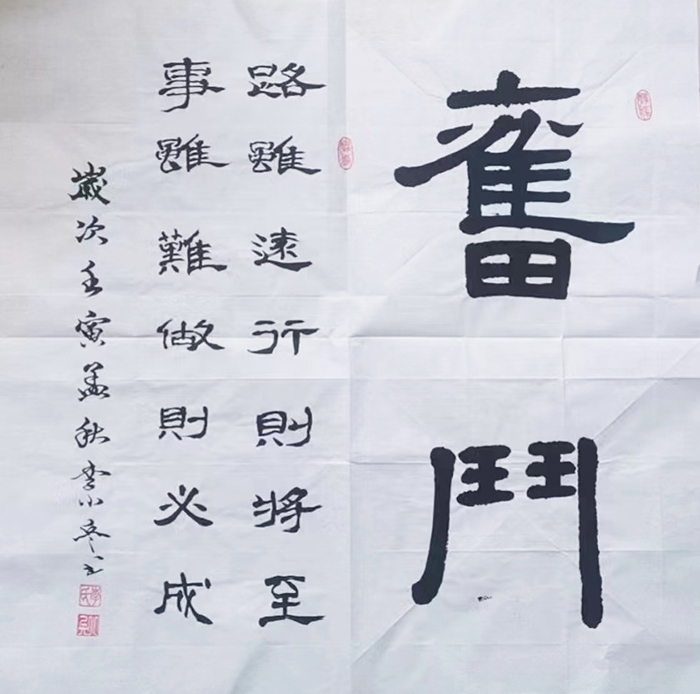 奮鬥
路雖遠行則將至
事雖難做則必成
歲次壬寅孟秋李小冬书